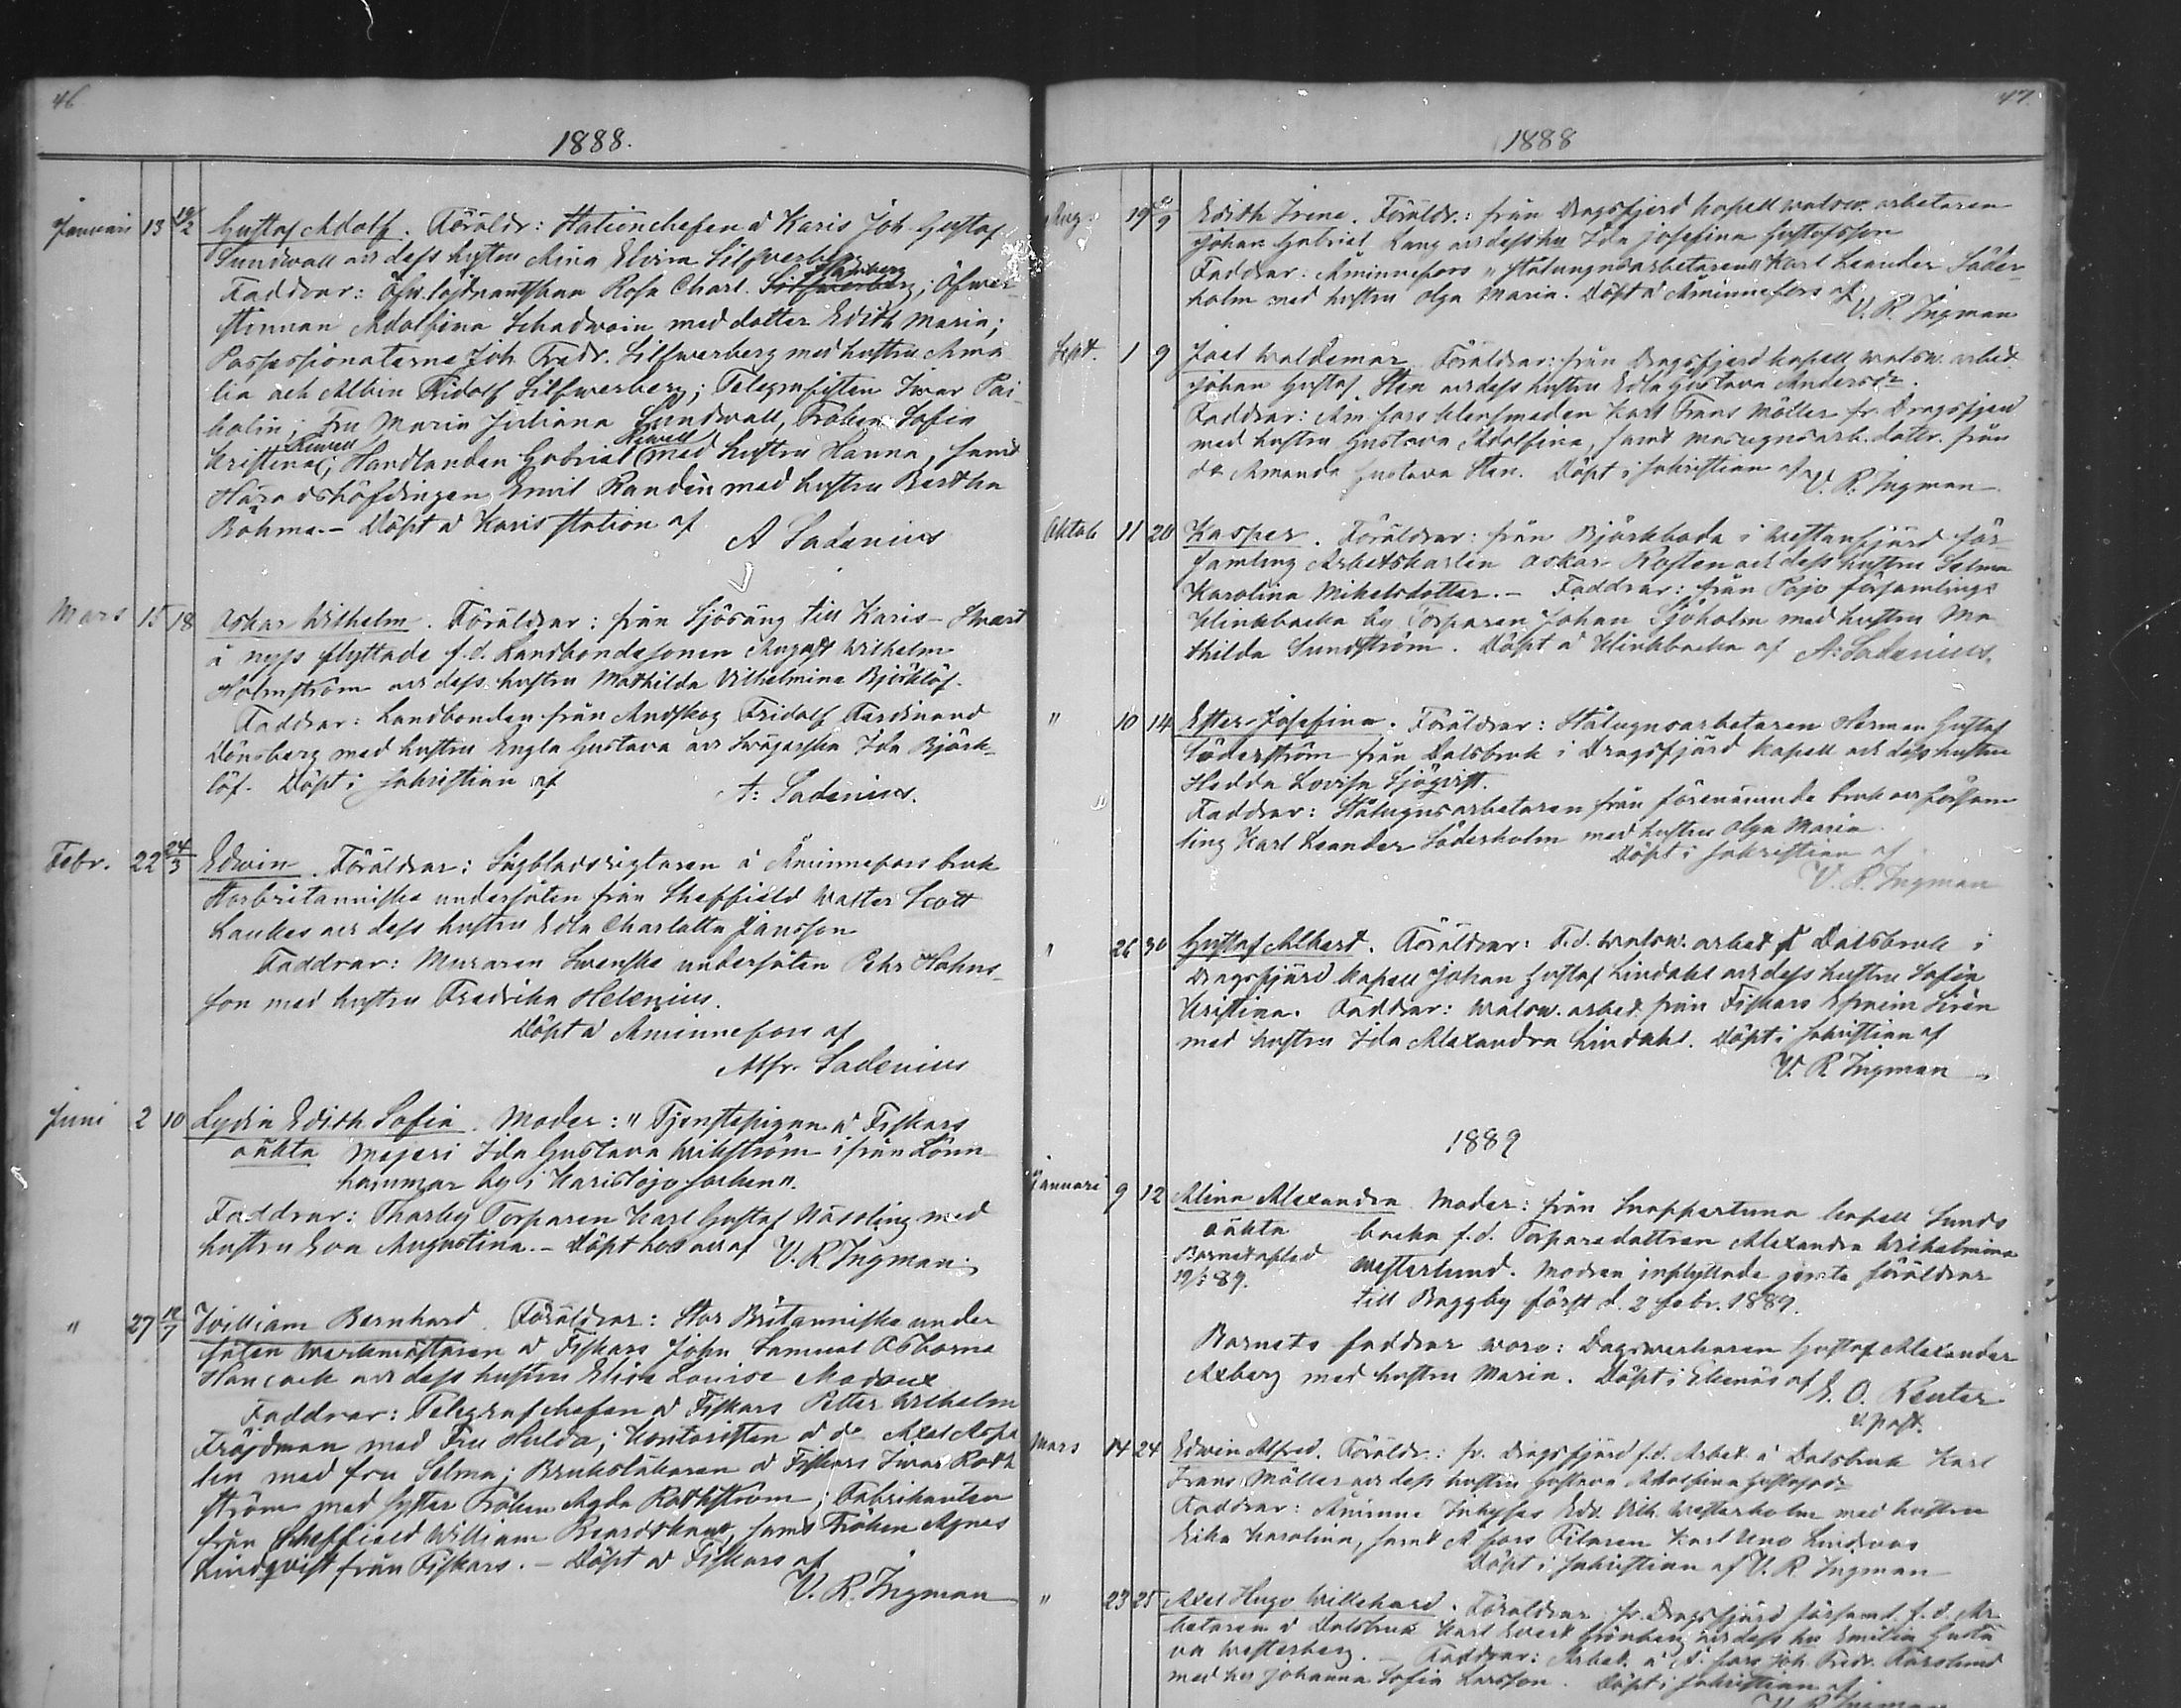 46
1888.
Januari 13 19/2 Gustaf Adolf. Föräldr: Stationchefen å Karis Joh. Gustaf
Sundwall och dess hustru Mina Elvira Silfverberg
Faddrar: Öfw. löjtnantskan Rosa Charl. Silfwerberg; Öfwer-
stinnan Adolfina Schadwoin med dotter Edith Maria;
Possessionaterna Joh. Fredr. Silfwerberg med hustru Ama-
lia och Albin Fridolf Silfwerberg; Telegrafisten Iwar Pai-
holin; Fru Maria Juliana Sundwall, Fröken Sofia
Kristina; Handlanden Gabriel med hustru Hanna, samt
Häradshöfdingen Emil Randén med hustru Bertha
Böhme. - Döpt å Karis station af
A Sadenius
Mars 15 18 Oskar Wilhelm. Föräldrar: från Sjösäng till Karis-Svart
å nyss flyttade f.d. Landbondesonen August Wilhelm
Holmström och dess hustru Mathilda Vilhelmina Björklöf.
Faddrar: Landbonden från Andskog Fridolf Ferdinand
Dönsberg med hustru Engla Gustava och Swägerskan Ida Björk-
löf. Döpt i sakristian af
A: Sadenius.
Febr. 22 24/3 Edwin. Föräldrar: Sågbladsrigtaren å Äminnefors bruk
Storbritanniska undersåten från Sheffield Walter Scott
Laukes och dess hustru Edla Charlotta Jansson
Faddrar: Muraren Swenska undersåten Pehr Hahns-
son med hustru Fredrika Helenius.
Döpt å Åminnefors af
Alfr. Sadenius
Juni 2 10 Lydia Edith Sofia. Moder: " Tjenstepigan å Fiskars
oäkta Mejeri Ida Gustava Wikström ifrån Lönn-
hammar by i Karislojo socken".
Faddrar: Tharby Torparen Karl Gustaf Nässling med
hustru Eva Augustina. - Döpt hos och af V. R. Ingman.
" 27 12/7 William Bernhard. Föräldrar: Stor Britanniska under
såten Werkmästaren å Fiskars John Samuel Osborne
Hancock och dess hustru Elise Louise Madoux
Faddrar: Telegrafchefen å Fiskars Petter Wilhelm
Fröjdman med Fru Hulda; Kontoristen å do Axel Aspe
lin med fru Selma; Bruksläkaren å Fiskars Iwar Roth
ström med syster Fröken Agda Rothström; Fabrikanten
från Sheffield William Beardshaw, samt Fröken Agnes
Lindqvist från Fiskars. - Döpt å Fiskars af
V. R. Ingman
47
1888
Aug. 19 2/9 Edith Irene. Föräldr.: från Dragsfjerd kapell walsw. arbetaren
Johan Gabriel Lang och dess hu Ida Josefina Gustafsson
Faddrar: Åminnefors "Stålugnsarbetaren" Karl Leander Söder-
holm med hustru Olga Maria. Döpt å Åminnefors af
V. R. Ingman
Sept. 1 9 Joel Waldemar. Föräldrar: från Dragsfjerd kapell walsw. arbet.
Johan Gustaf Sten och dess hustru Edla Gustava Andersdr.
Faddrar: Åm.fors klensmeden Karl Frans Möller fr. Dragsfjerd
med hustru Gustava Adolfina, samt masugnsarb. dottr. från
do Amanda Gustava Sten. Döpt i sakristian af V. R. Ingman
Oktob 11 20 Kasper. Föräldrar: från Björkboda i Westanfjärd för-
samling Arbetskarlen Oskar Rosten och dess hustru Selma
Karolina Mikelsdotter. - Faddrar: från Pojo församlings
Klinkbacka by Torparen Johan Sjöholm med hustru Ma-
thilda Sundström. Döpt å Klinkbacka af A: Sadenius.
" 10 14 Ester Josefina. Föräldrar: Stålugnsarbetaren Herman Gustaf
Söderström från Dalsbruk i Dragsfjärd kapell och dess hustru
Hedda Lovisa Sjöqvist.
Faddrar: Stålugnsarbetaren från förenämnde bruk och försam
ling Karl Leander Söderholm med hustru Olga Maria
Döpt i sakristian af
V. R. Ingman
" 26 30 Gustaf Albert. Föräldrar: F.d. walsw. arbet. fr Dalsbruk i
Dragsfjärd kapell Johan Gustaf Lindahl och dess hustru Sofia
Kristina. Faddrar: walsw. arbet. från Fiskars Efraim Sirén
med hustru Ida Alexandra Lindahl. Döpt i sakristian af
V. R. Ingman
1889
Januari 9 12 Alina Alexandra. Moder: från Snappertuna kapell Sunds
oäkta backa f.d. Torparedottren Alexandra Wilhelmina
Westerlund. Modren inflyttade jemte föräldrar
till Baggby först d. 2 febr. 1889.
Barnets faddrar woro: Dagswerkaren Gustaf Alexander
Axberg med hustru Maria. Döpt i Ekenäs af E. O. Reuter
v. past.
Mars 14 24 Edwin Alfred. Föräldr.: fr. Dragsfjärd f.d. Arbet. å Dalsbruk Karl
Frans Möller och dess hustru Gustava Adolfina Gustafsdr
Faddrar: Åminne Inhyses Edv. Vilh. Westerholm med hustru
Erika Karolina, samt Å.fors Filaren Karl Uno Lindroos
Döpt i sakristian af V. R. Ingman
" 23 25 Axel Hugo Willehard. Föräldrar: fr. Dragsfjärd församl. f.d. Ar-
betaren å Dalsbruk Karl Evert Grönberg och dess hu Emilia Gusta
va Westerberg. - Faddrar: Arbet. å Å.fors Joh. Fredr. Karslund
med hu Johanna Sofia Karlsson. Döpt i sakristian af
V. R. Ingman